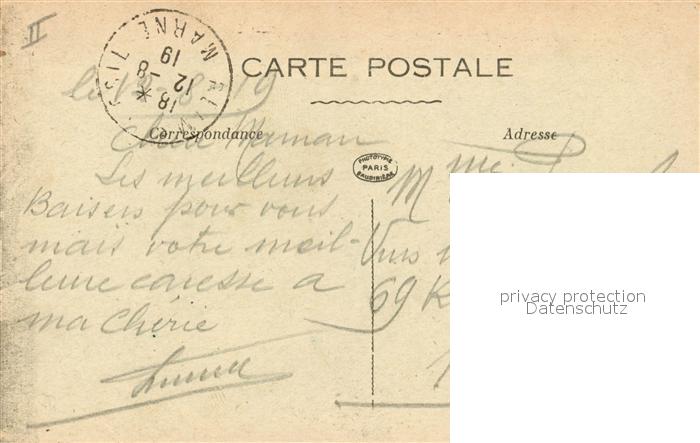 II
REIMS
MARNE
18 *
12 - 8
19
CARTE POSTALE
le 12-8-19
Correspondance
Adresse
Chère Maman
PHOTOTYPE
PARIS
BAUDINIÈRE
Les meilleurs
Baisers pour vous
mais votre meil-
leure caresse a
ma Chérie
Mme
69
privacy protection
Datenschutz